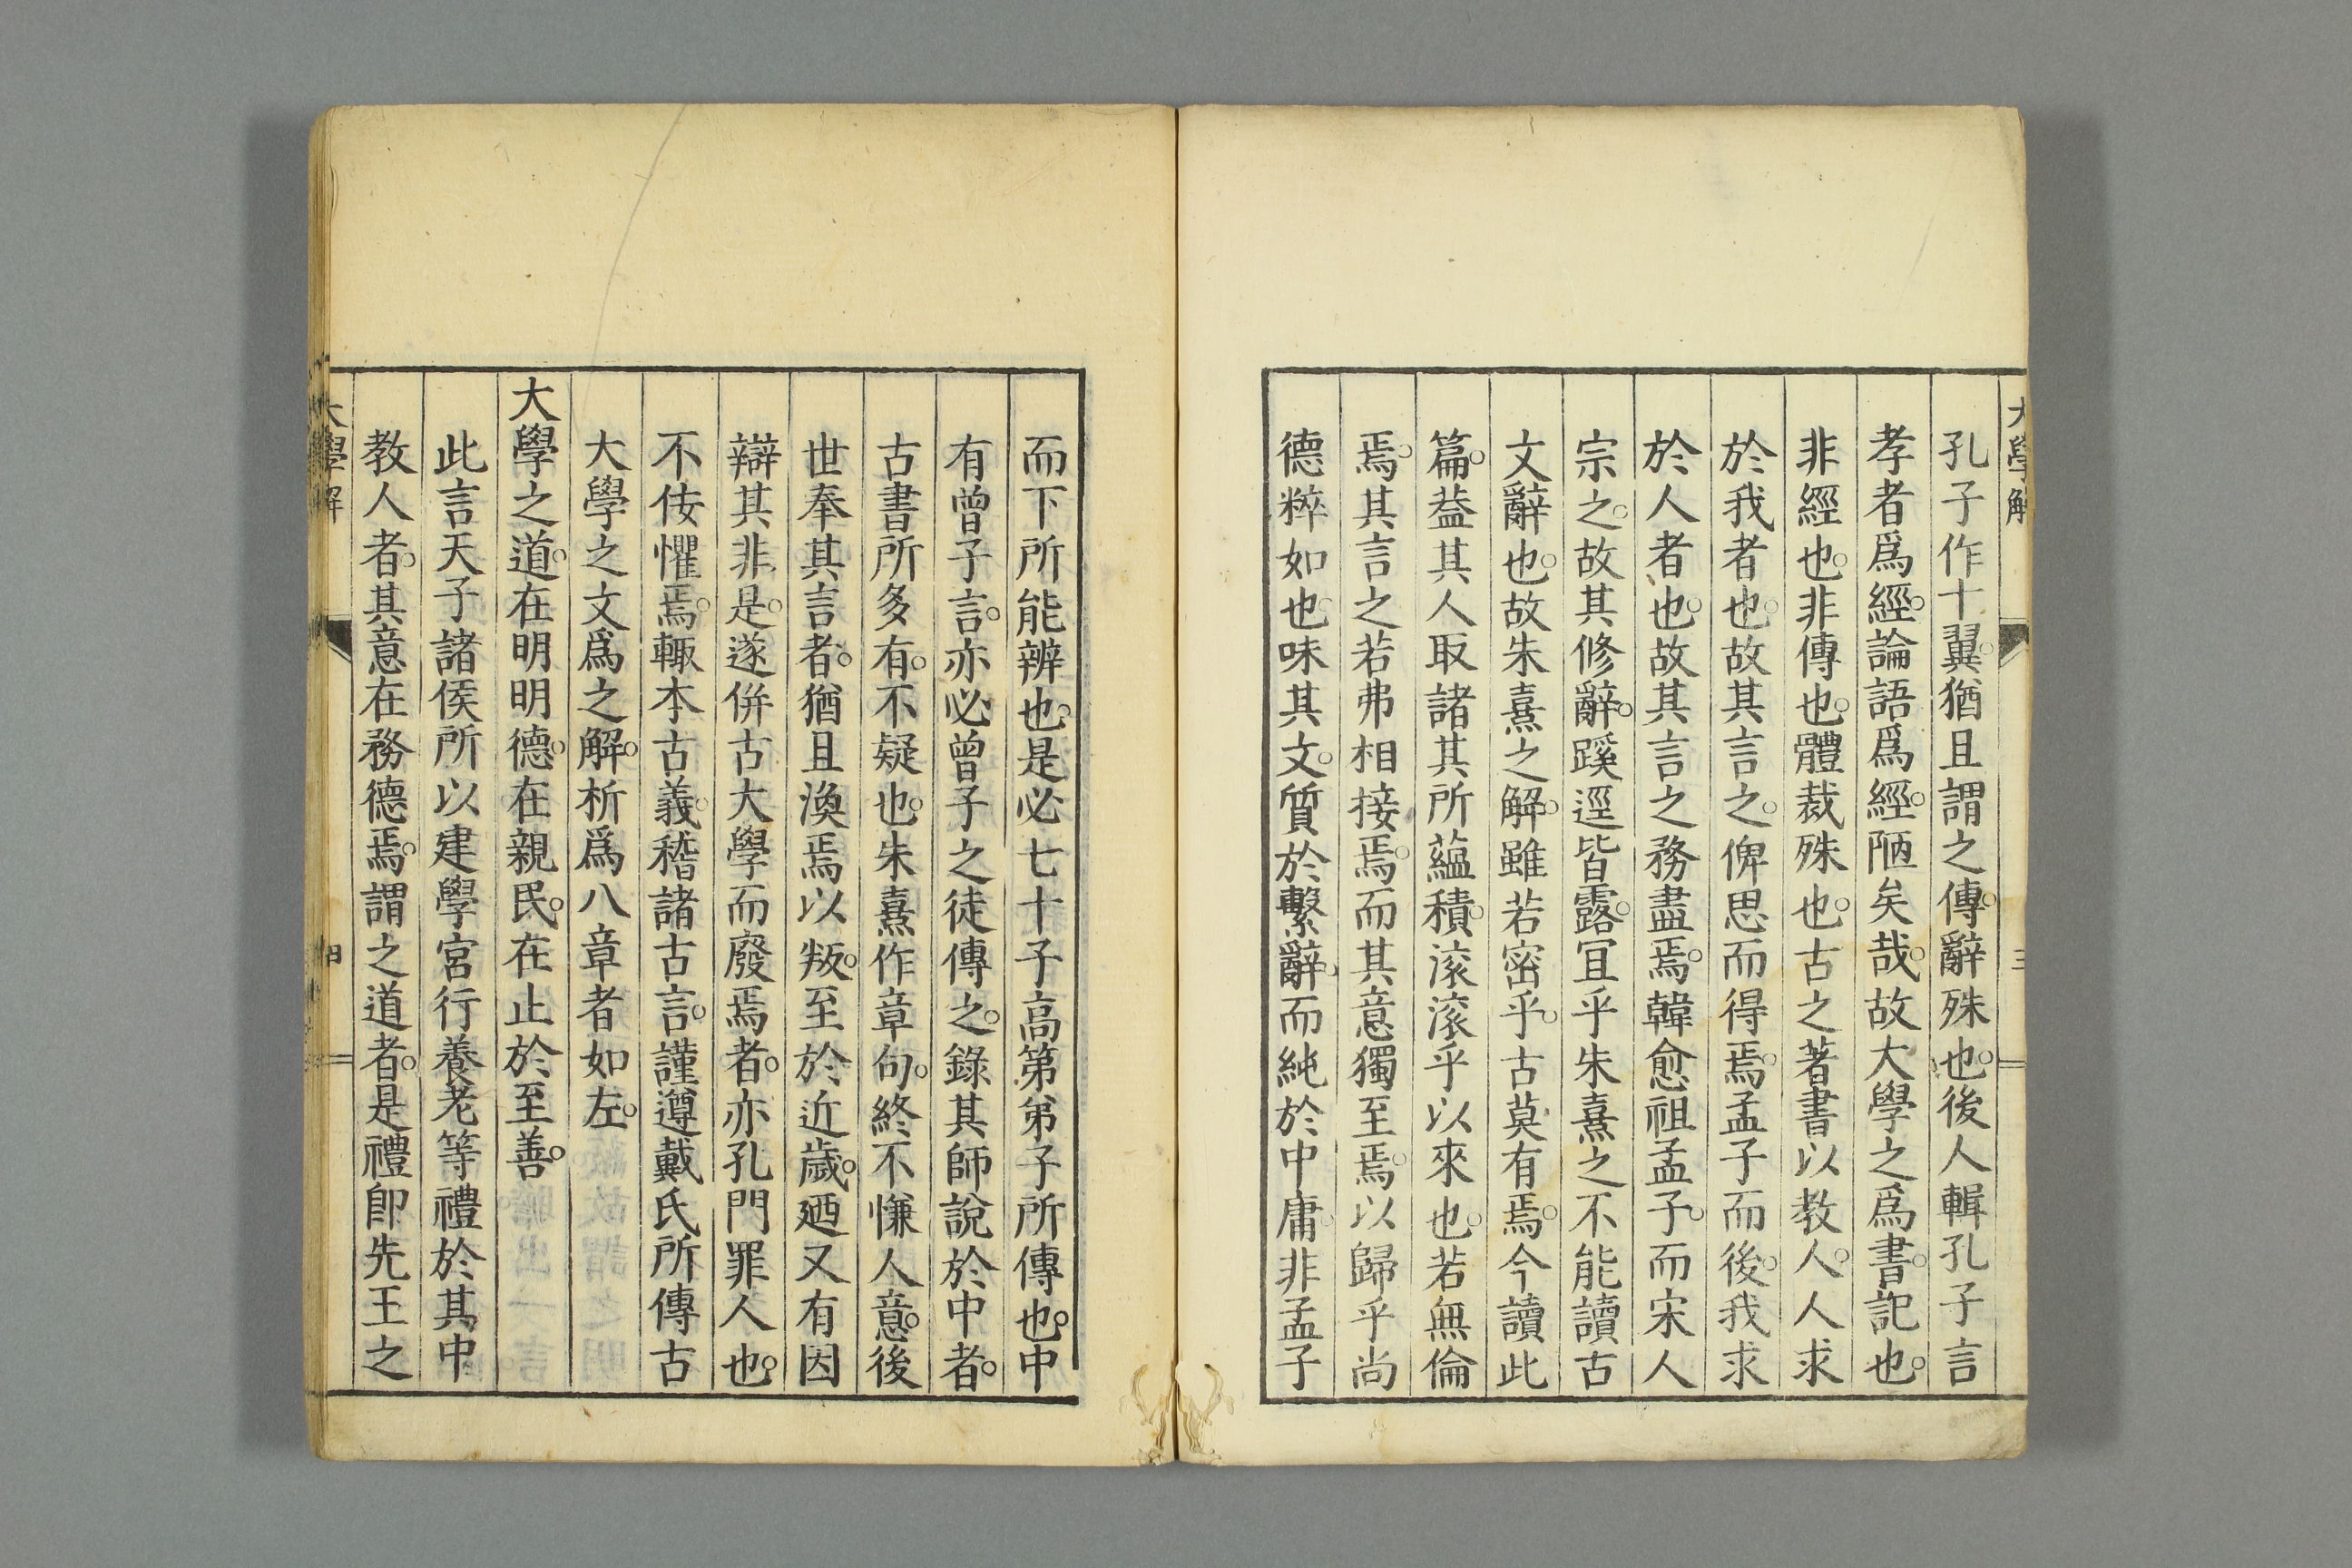 大學解
三
孔子作十翼。猶且謂之傳。辭殊也。後人輯孔子言
孝者爲經。論語爲經。陋矣哉。故大學之爲書。記也。
非經也。非傳也。體裁殊也。古之著書以教人。人求
於我者也。故其言之。俾思而得焉。孟子而後。我求
於人者也。故其言之務盡焉。韓愈祖孟子。而宋人
宗之。故其修辭。蹊逕皆露。冝乎朱熹之不能讀古
文辭也。故朱熹之解。雖若密乎。古莫有焉。今讀此
篇。葢其人取諸其所蘊積。滾滾乎以來也。若無倫
焉。其言之若弗相接焉。而其意獨至焉。以歸乎尚
德粹如也。味其文。質於繫辭。而純於中庸。非孟子
而下所能辨也。是必七十子高第弟子所傳也。中
有曾子言。亦必曾子之徒傳之。錄其師說於中者。
古書所多有。不疑也。朱熹作章句。終不慊人意。後
世奉其言者。猶且渙焉以叛。至於近歲。廼又有因
辯其非是。遂併古大學而廢焉者。亦孔門罪人也。
不佞懼焉。輙本古義。稽諸古言。謹遵戴氏所傳古
大學之文爲之解。析爲八章者如左。
大學之道。在明明德。在親民。在止於至善。
此言天子諸侯所以建學宮行養老等禮於其中
教人者。其意在務德焉。謂之道者。是禮卽先王之
大學解
四